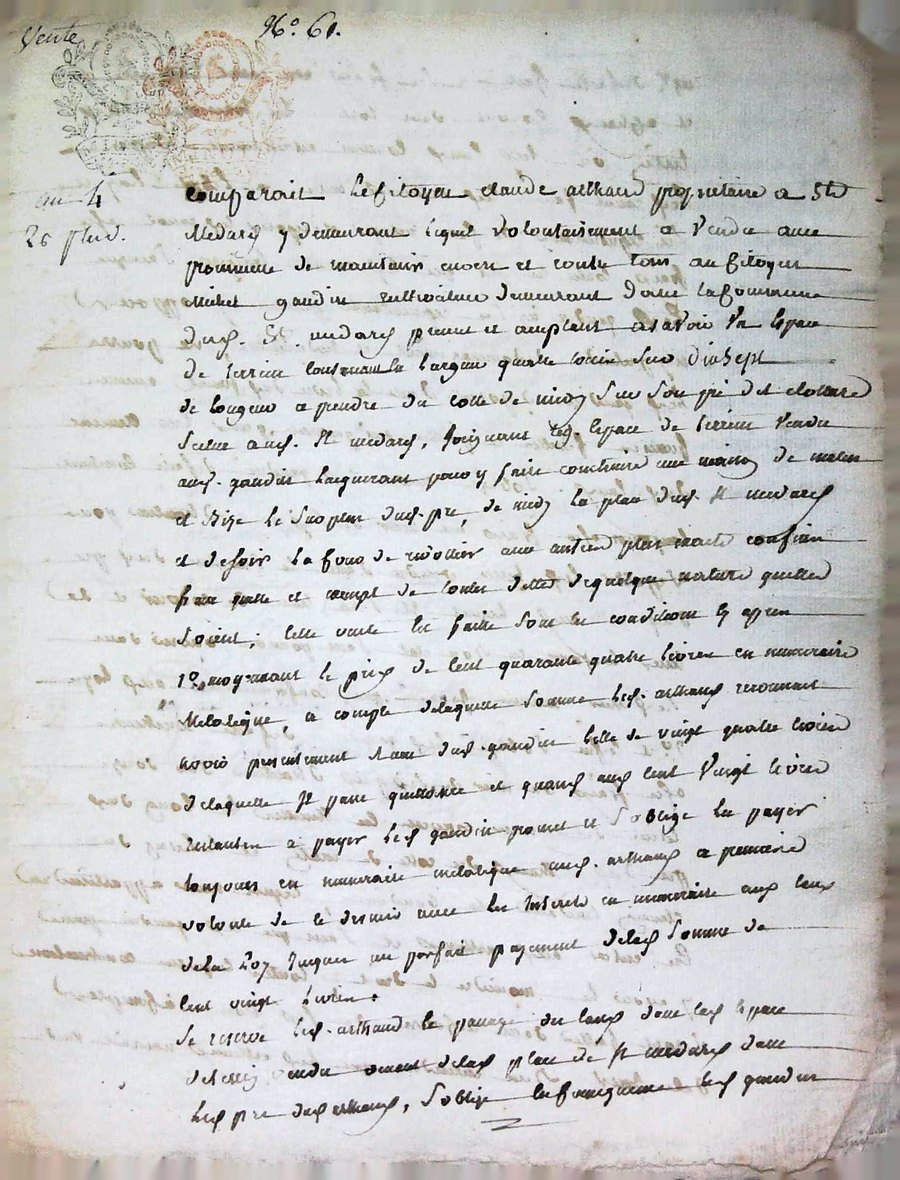 Vente
N.o 61.
an 4
26 pluv.
Comparait le Citoyen claude arthaud propriétaire a St
Medard y demeurant lequel volontairement a vendu avec
promesse de maintenir envers et contre tous au Citoyen
Michel gaudin cultivateur demeurant dans la Commune
dud. St. medard present et acceptant a savoir un espace
de terrein contenant la largeur quatre toises sur dix sept
de longueur a prendre du cotte de midy sur son pré dit
situe aud. St medard, joignant led. espace de terrein vendu
aud. gaudin lacquerant pour y faire construire une maison de matin
et bize le surplus dud. pré, de midy la place dud. St medard
et de soir le fond de aux autres plus exacts confins
franc quitte et exempt de toutes dettes de quelque nature quelles
soient; cette vente est faite sous les conditions cy apres
1.o moyenant le prix de cent quarante quatre livres en numeraire
Metalique, a compte de laquelle somme led. arthaud reconnait
avoir presentement dud. gaudin celle de vingt quatre livres
de laquelle il passe quittance et quand aux cent vingt livres
restantes a payer led gaudin promet et soblige les payer
toujours en numeraire metalique aud. arthaud a premiere
volonté de ce dernier avec les interets en numeraire aux taux
de la loy jusques au parfait payement de lad somme de
cent vingt livres.
Se reserve led. arthaud le passage du dans led espace
de vendu de lad place de St medard dans
led pré dud arthaud, soblige led gaudin